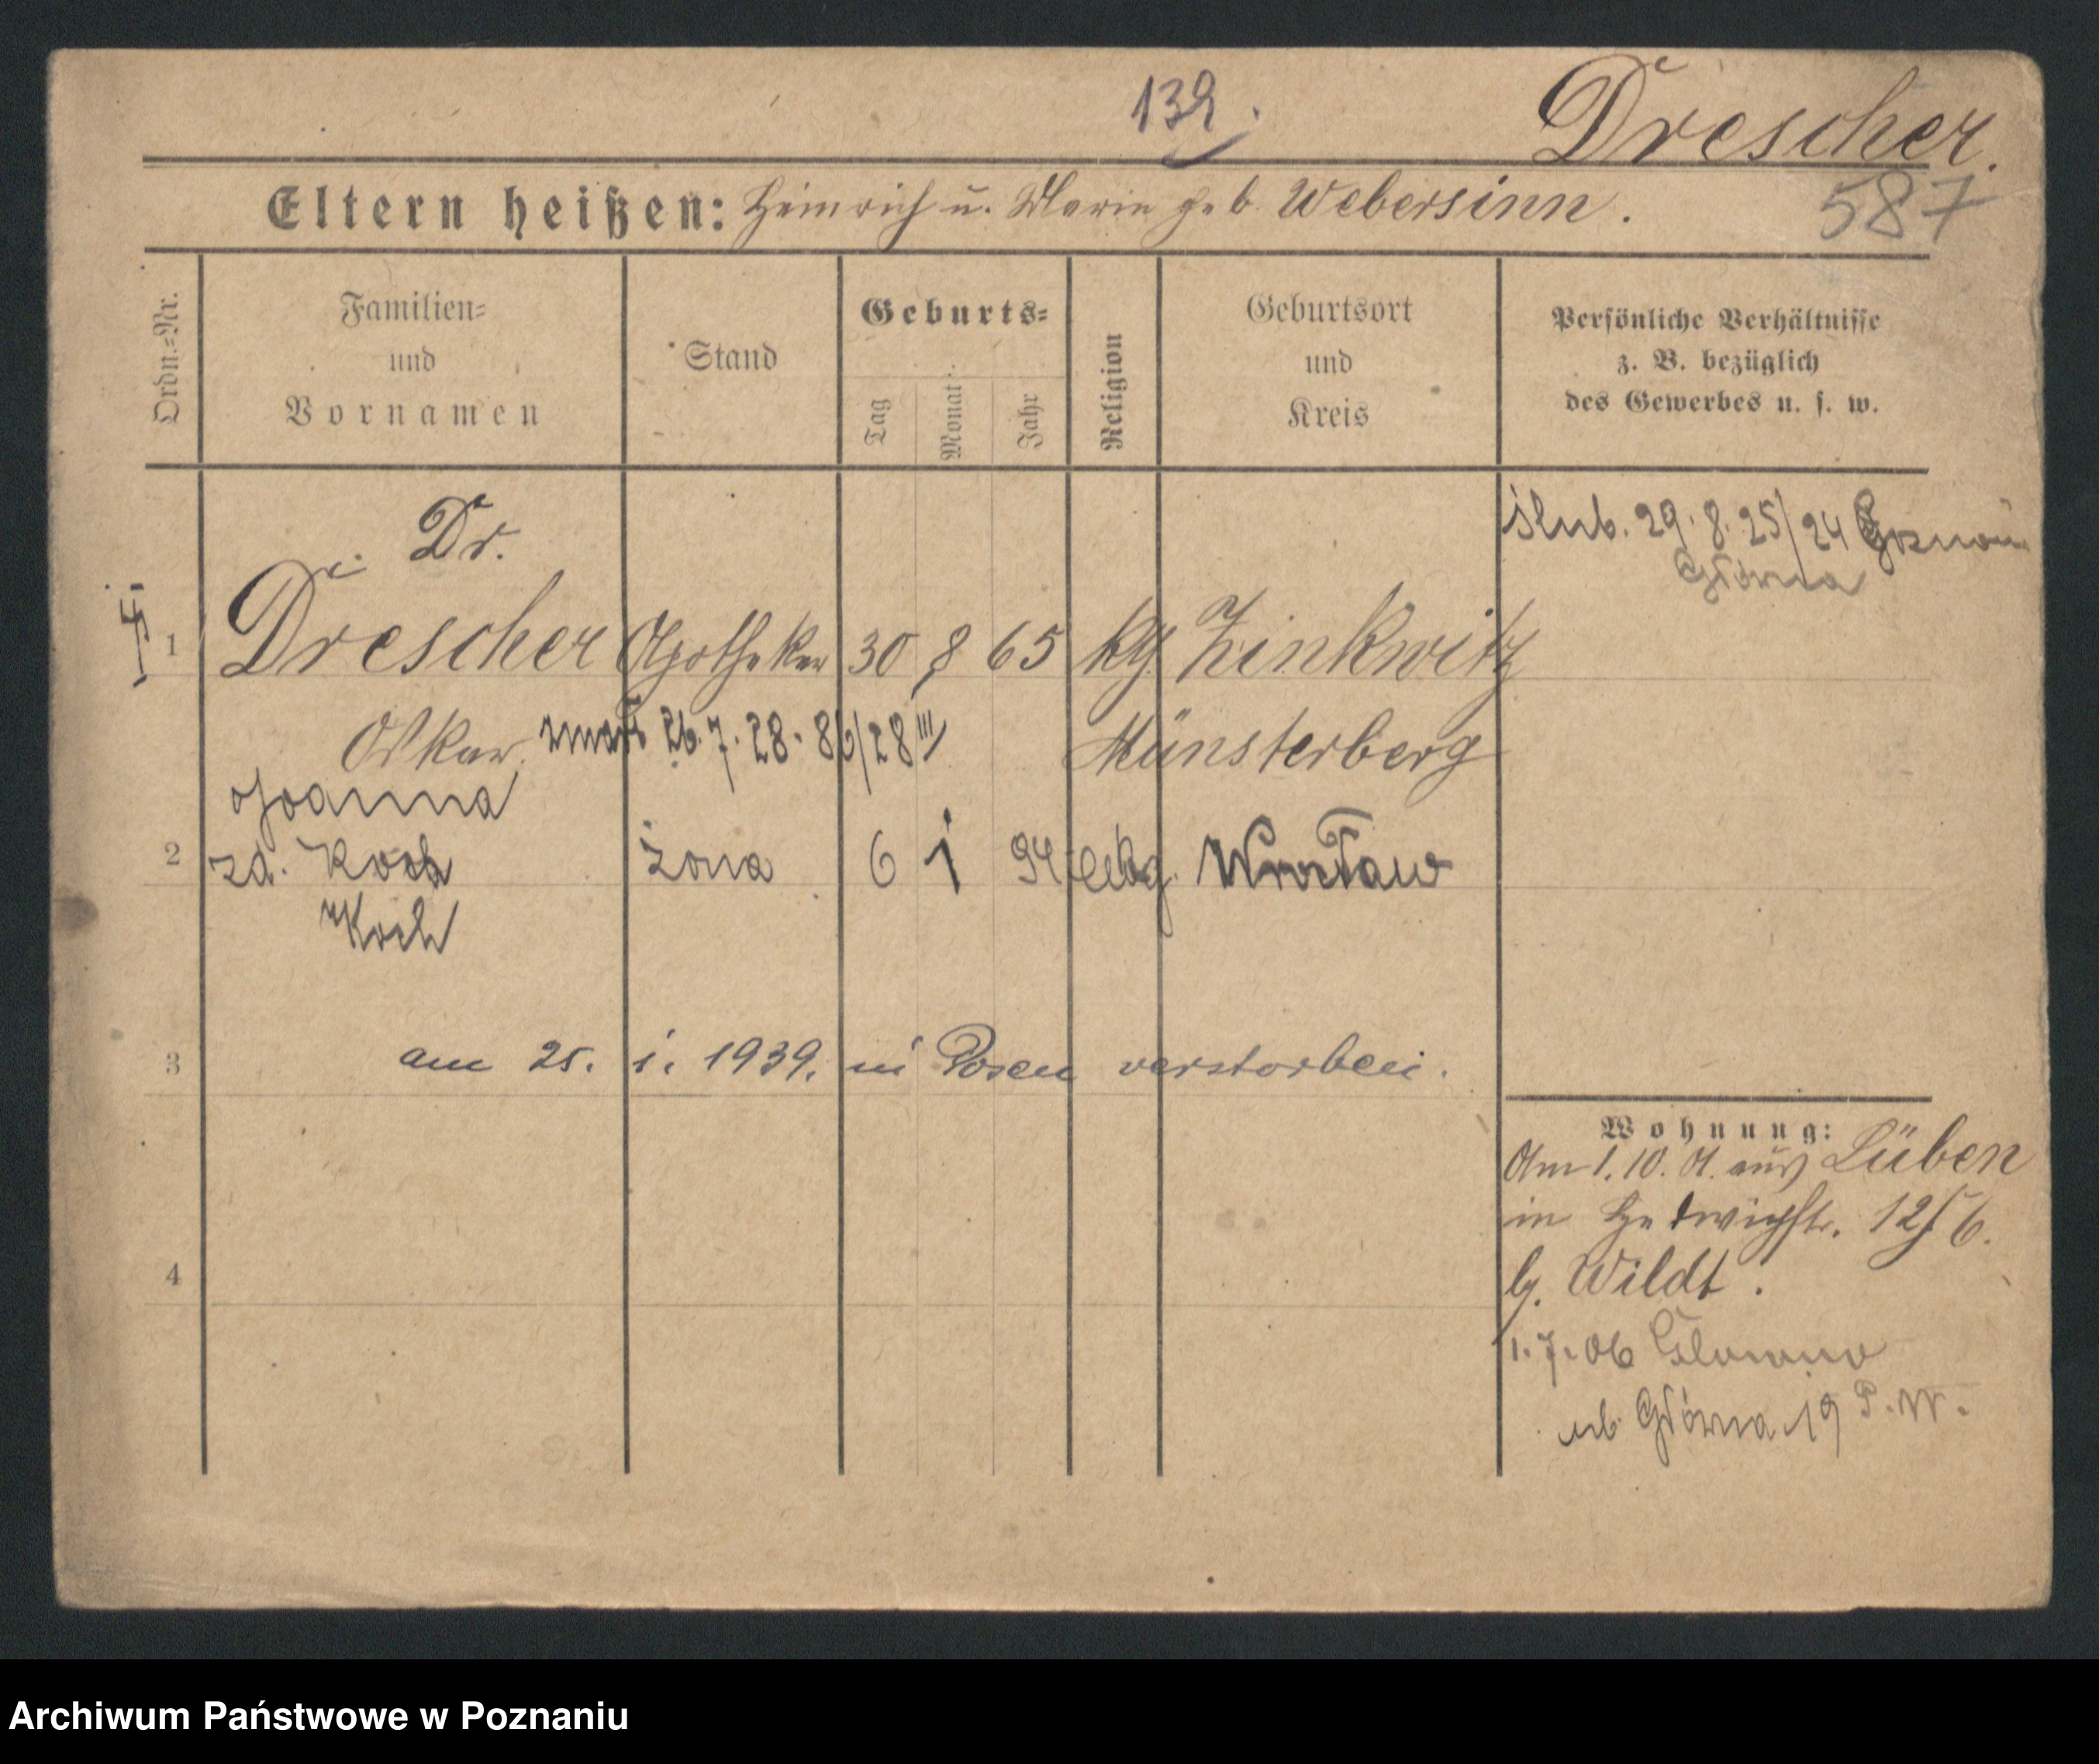 139.
Drescher.
Eltern heißen: Heinrich u. Marie geb. Webersinn.
587
Ordn.=Nr.
Familien=
und
Vornamen
Stand
Geburts=
Tag
Monat
Jahr
Religion
Geburtsort
und
Kreis
Persönliche Verhältnisse
z. B. bezüglich
des Gewerbes u. s. w.
Dr.
ślub. 29.8.25/24
Główna
1 Drescher Apotheker 30 8 65 kg. Zinkwitz
Oskar. zmarł 26.7.28. 86/28 III Münsterberg
Joanna
2 zd. Koch żona 6 1 94 Wrocław
Koch
3 am 25. 1. 1939. in Posen verstorben.
Wohnung:
Am 1. 10. aus Lüben
in Hedwigstr. 12/6.
b. Wildt.
4
1.7.06 Glowno
Główna 19 P.W.
Archiwum Państwowe w Poznaniu